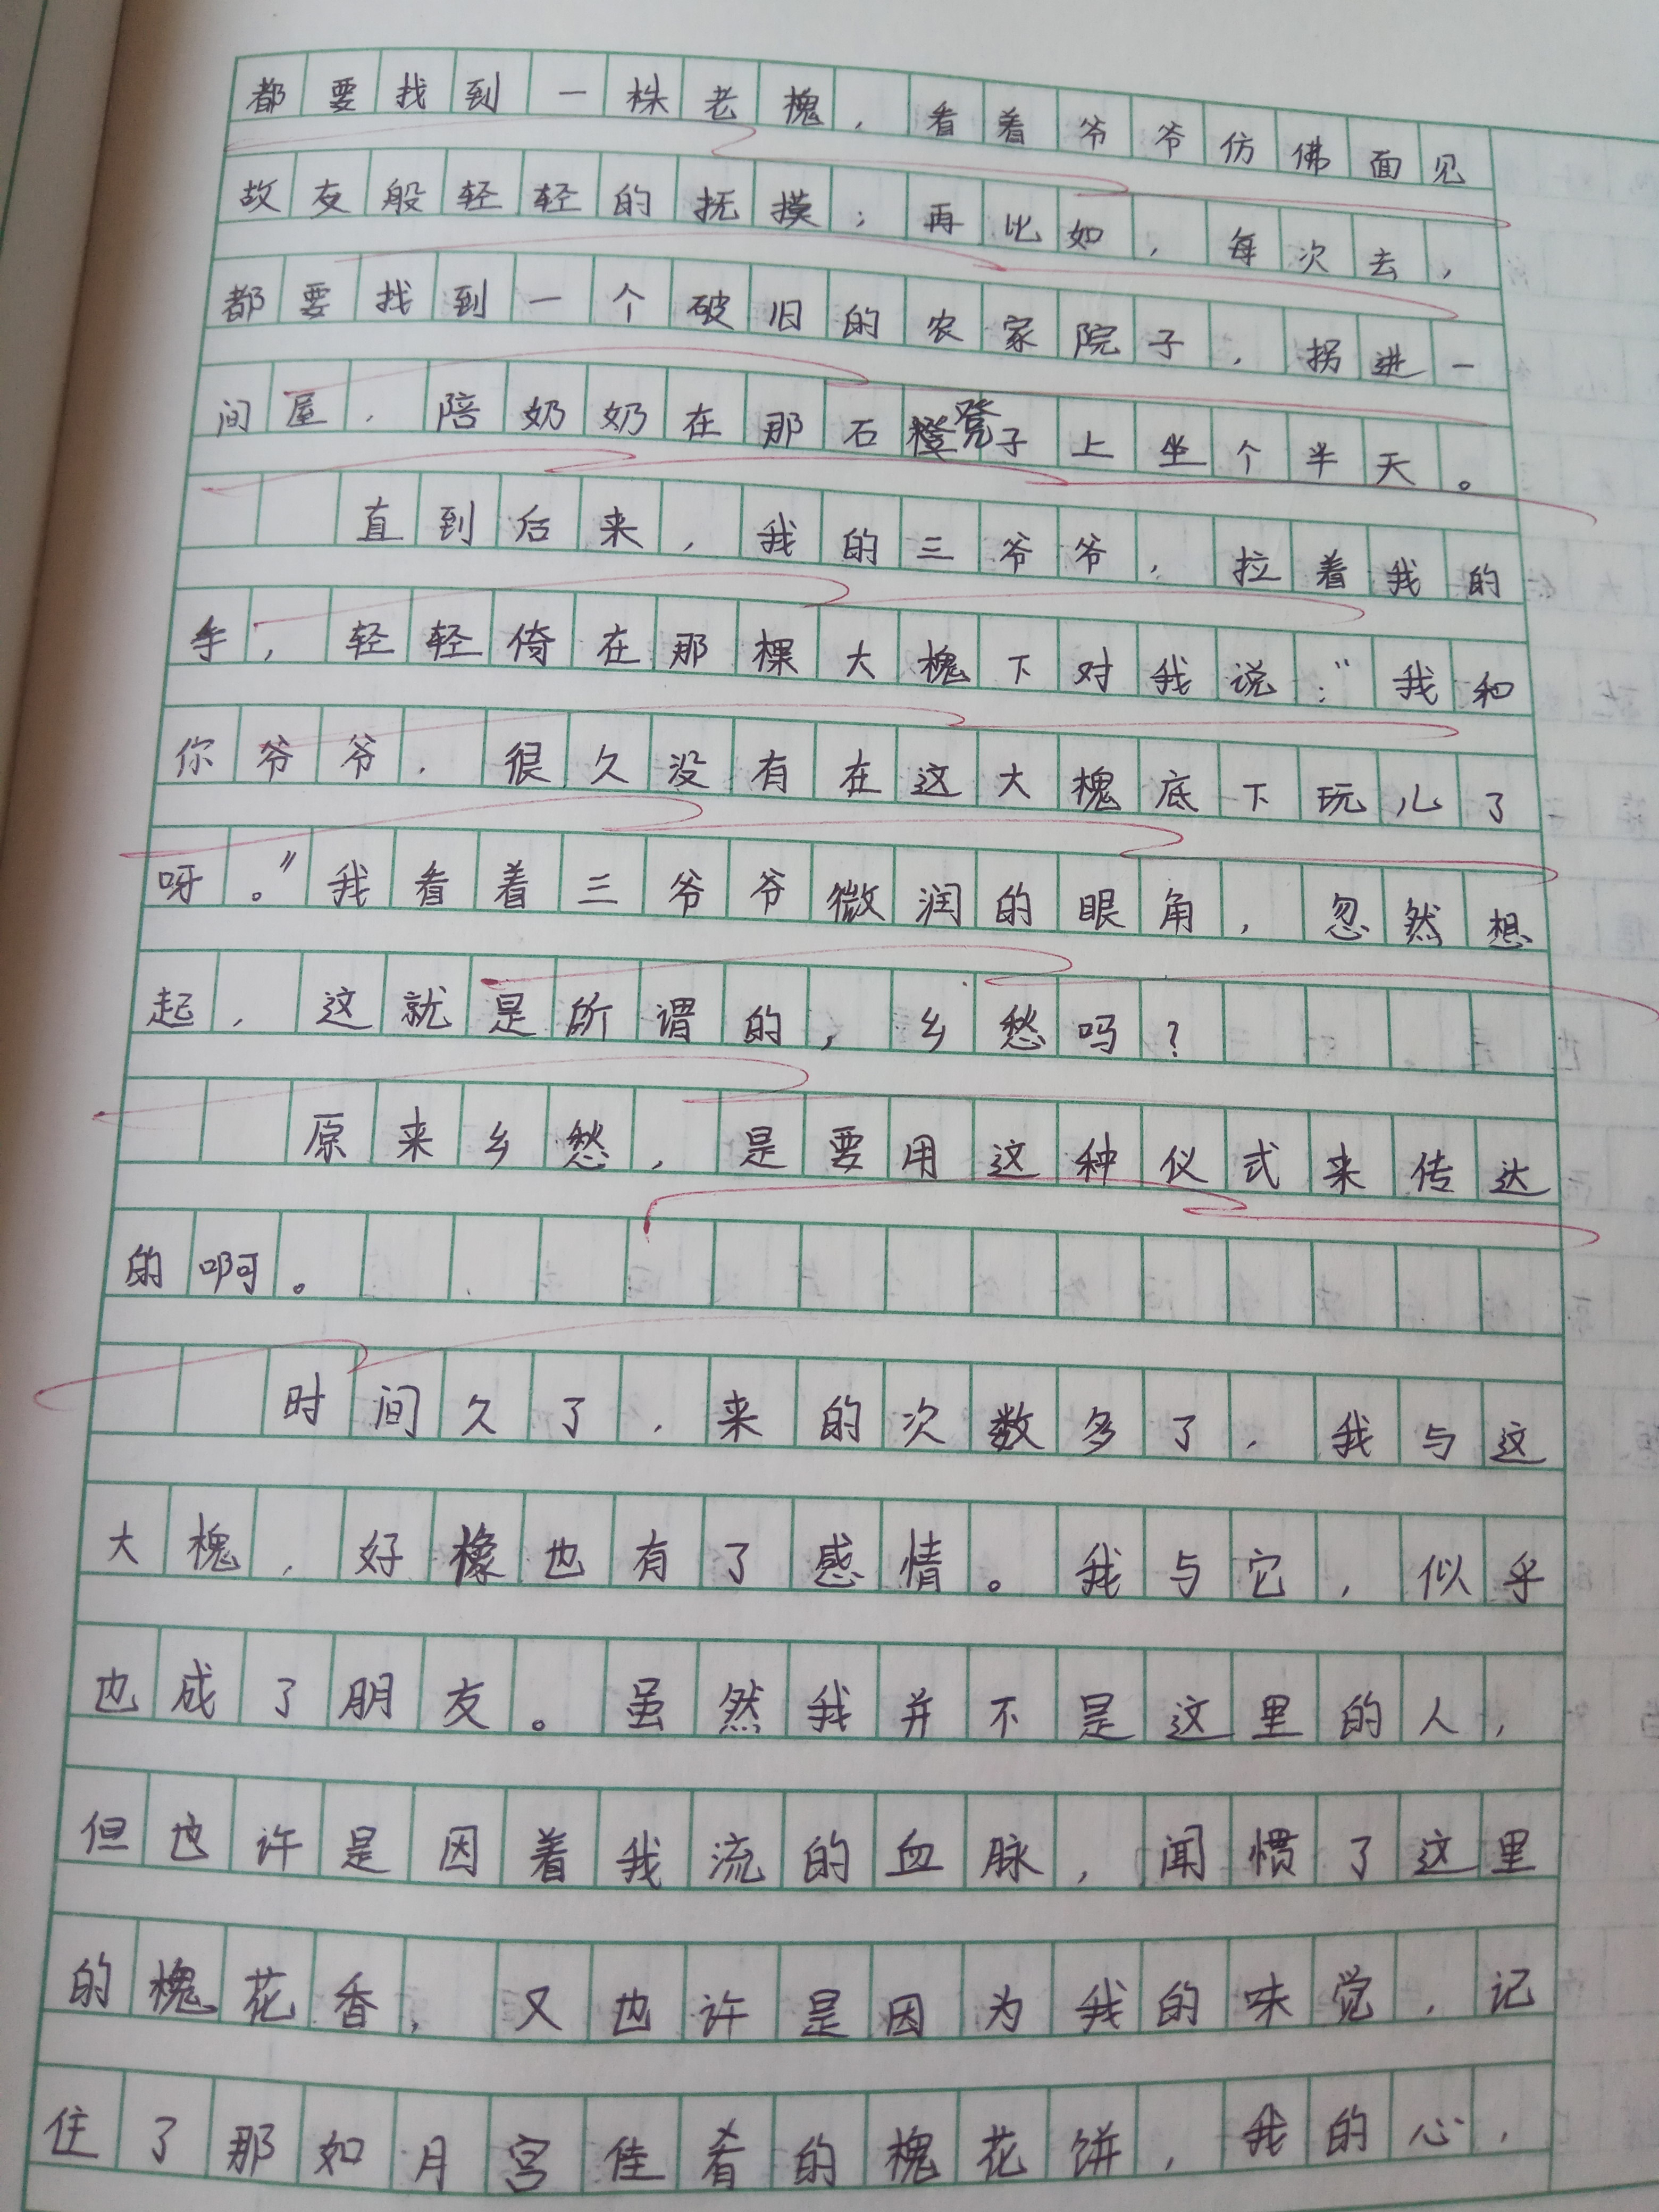 都要找到一株老槐，看着爷爷仿佛面见
故友般轻轻的抚摸；再比如，每次去，
都要找到一个破旧的农家院子，拐进一
间屋，陪奶奶在那石凳子上坐个半天。
直到后来，我的三爷爷，拉着我的
手，轻轻倚在那棵大槐下对我说：“我和
你爷爷，很久没有在这大槐底下玩儿了
呀。”我看着三爷爷微润的眼角，忽然想
起，这就是所谓的，乡愁吗？
原来乡愁，是要用这种仪式来传达
的啊。
时间久了，来的次数多了，我与这
大槐，好橡也有了感情。我与它，似乎
也成了朋友。虽然我并不是这里的人，
但也许是因着我流的血脉，闻惯了这里
的槐花香，又也许是因为我的味觉，记
住了那如月宫佳肴的槐花饼，我的心，